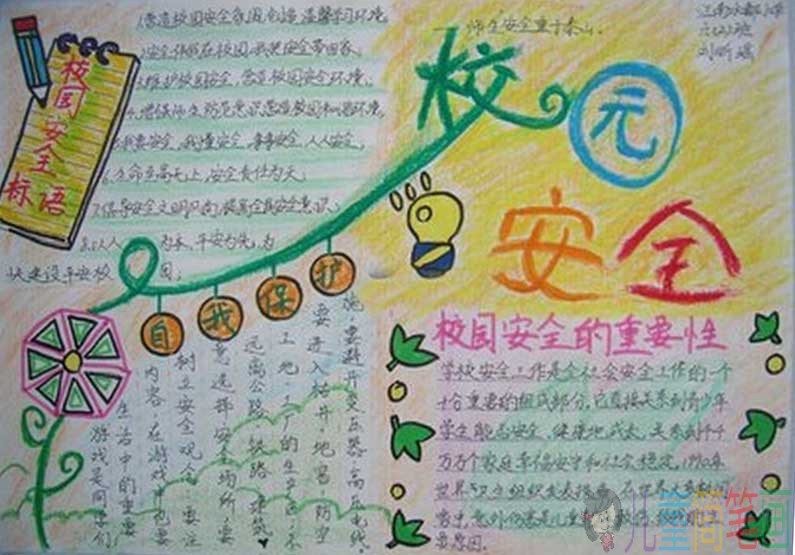 校园安全标语
1.营造校园安全氛围,创造温馨学习环境。
2.安全伴我在校园,我把安全带回家。
3.维护校园安全,营造校园安全环境。
4.增强师生防范意识,营造校园和谐环境。
5.我要安全,我懂安全,事事安全,人人安全。
6.生命至高无上,安全责任为天
7.倡导安全文明风尚,提高全员安全意识;
以人为本,平安为先,为
快建设平安校园;
师生安全重于泰山.
校元安全
自我保护
游戏是同学们
生活中的重要
内容,在游戏中也要
树立安全观念:要注
意选择安全场所,要
远离公路、铁路、建筑
工地、工厂的生产区,不
要进入枯井、地窖、防空
施,要避开变压器、高压电线。
校园安全的重要性
学校安全工作是全社会安全工作的一个
十分重要的组成部分。它直接关系到青少年
学生能否安全、健康地成长,关系到千千
万万个家庭幸福安宁和社会稳定,1990年
世界卫生组织发表报告:世界大多数国
家中,意外伤害是儿童
要原因.
儿童简笔画